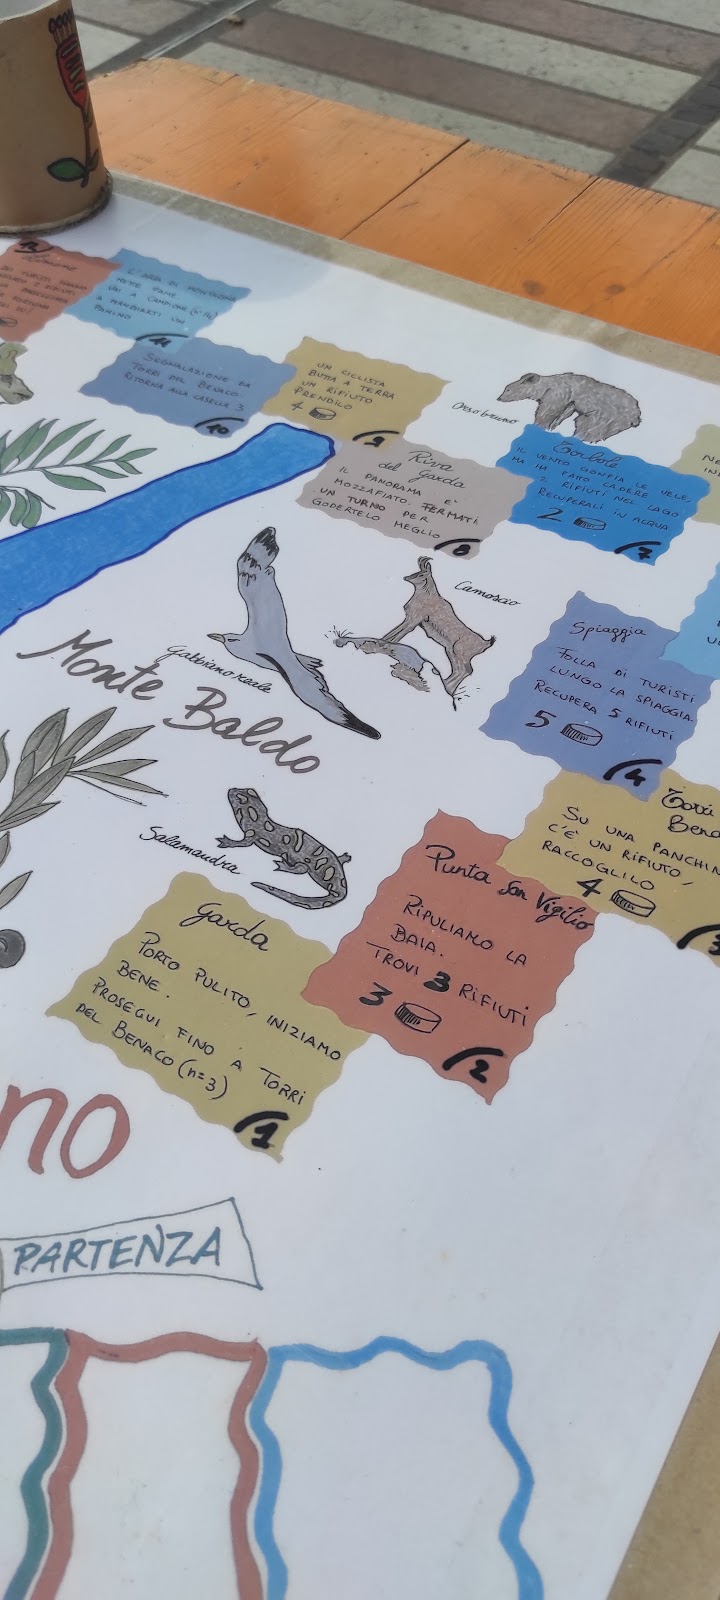 12
11
L'AREA DI MONTAGNA
METTE FAME
VAI A CAMPIONE (n°14)
A MANGIARTI UN
PANINO
SEGNALAZIONE DA
TORRI DEL BENACO
RITORNA ALLA CASELLA 3
10
UN CICLISTA
BUTTA A TERRA
UN RIFIUTO
PRENDILO
4
9
Orso bruno
Riva
del Garda
IL PANORAMA E'
MOZZAFIATO. FERMATI
UN TURNO PER
GODERTELO MEGLIO
8
Torbole
IL VENTO GONFIA LE VELE
MA HA FATTO CADERE
2 RIFIUTI NEL LAGO
RECUPERALI IN ACQUA
2
7
Camoscio
Gabbiano reale
Monte Baldo
Spiaggia
FOLLA DI TURISTI
LUNGO LA SPIAGGIA.
RECUPERA 5 RIFIUTI
5
4
Torri
Bena
SU UNA PANCHIN
C'È UN RIFIUTO,
RACCOGLILO
4
3
Salamandra
Punta San Vigilio
RIPULIAMO LA
BAIA.
TROVI 3 RIFIUTI
3
2
Garda
PORTO PULITO, INIZIAMO
BENE.
PROSEGUI FINO A TORRI
DEL BENACO (n=3)
1
no
PARTENZA